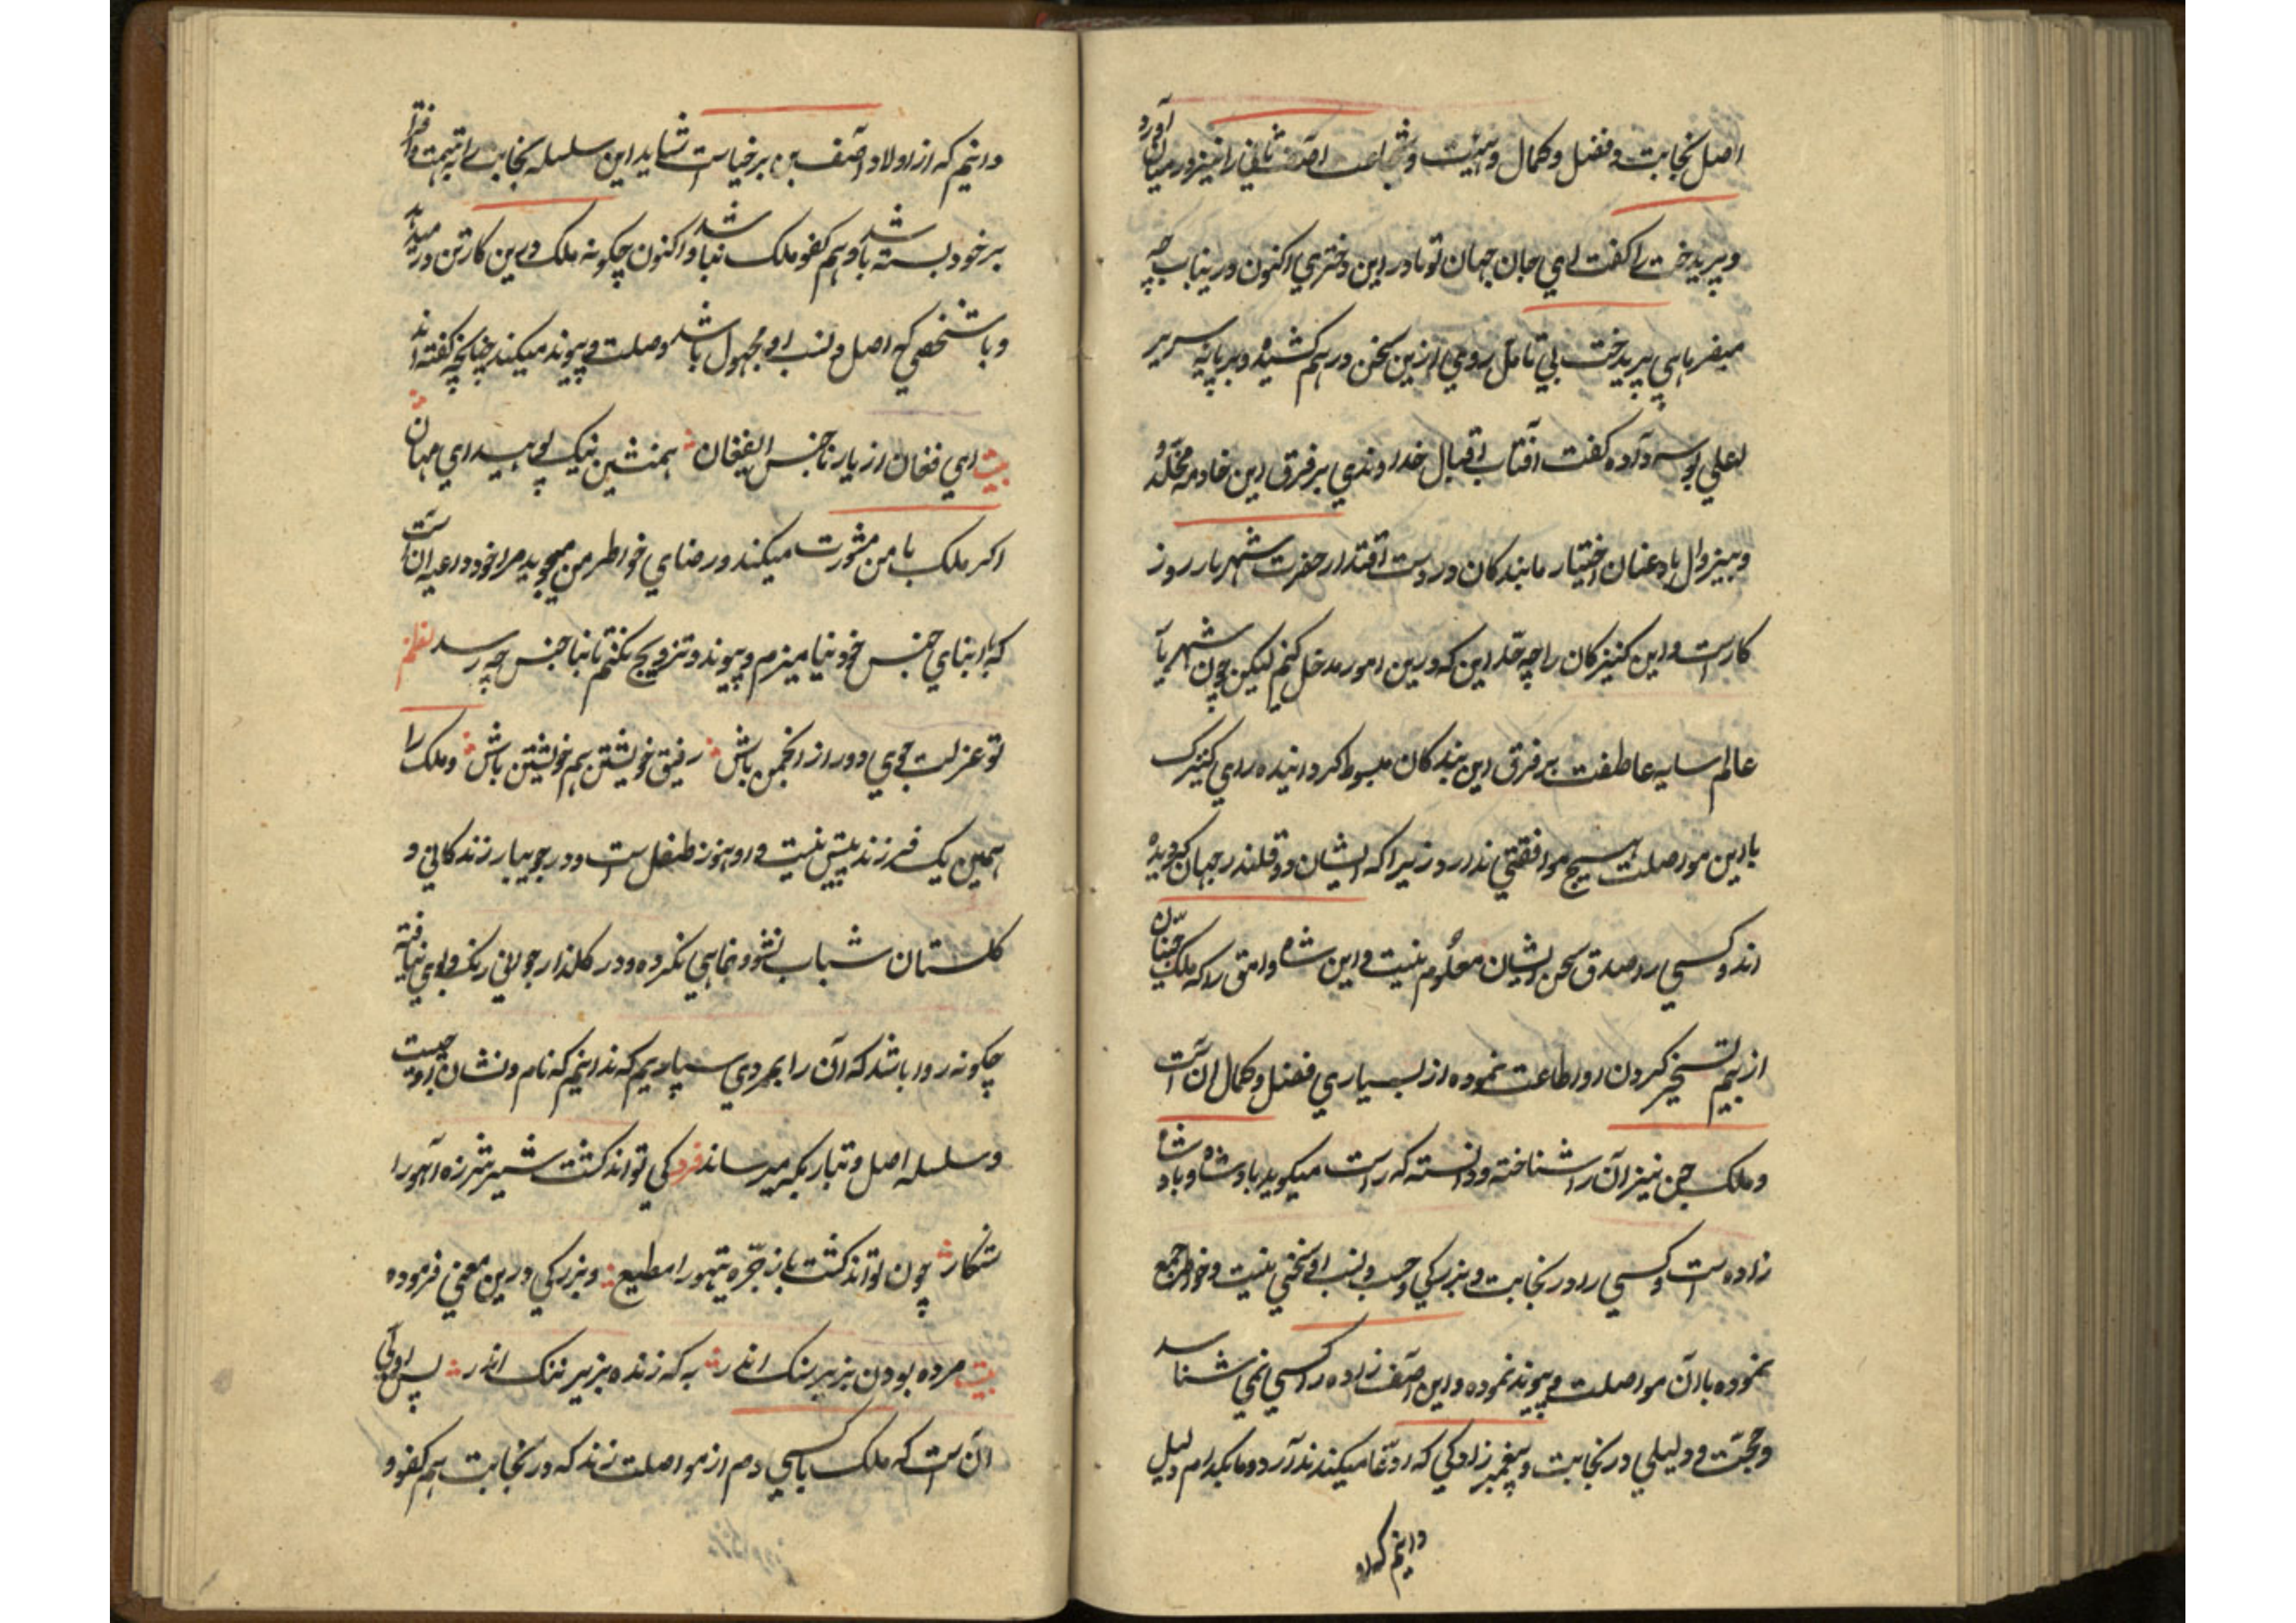 اصل نجابت و فضل و کمال و هیئت و شجاعت آصف ثانی را نیز در میان آورد
و پریدخت را گفت ای جان جهان تو مادر این دختری اکنون درینباب چه
میفرمایی پریدخت بی تامل روی ازین سخن درهم کشیده و بر پایه سریر
لعلی بوسه داده گفت آفتاب اقبال خداوندی بر فرق این خادمه مخلد و
و بیزوال باد عنان اختیار ما بندکان در دست اقتدار حضرت شهریار روز
کارست و این کنیزکان را چه حد این که درین امور مدخل کنیم لیکن چون شهریار
عالم سایه عاطفت بر فرق این بندکان مبسوط کردانیده رای کنیزک
بااین مواصلت هیچ موافقتی ندارد زیراکه ایشان دو قلندر جهان کردیده
اند و کسی را صدق سخن ایشان معلوم نیست و این شاه وامق را که ملک جنیان
از بیم تسخیر کردن او اطاعت نموده از بسیاری فضل و کمال آن است
و ملک جن نیز آن را شناخته و دانسته که راست میکوید پادشاه و پادشاه
زاده است و کسی را در نجابت و بزرکی و حسب و نسب او سخنی نیست و خواطر جمع
نموده باآن مواصلت و پیوند نموده و این آصف زاده را کسی نمی شناسد
و حجت و دلیلی در نجابت و پیغمبر زادکی که ادعا میکند ندارد و ما بکدام دلیل
دانیم که از
دانیم که از اولاد آصف بن برخیاست شاید این سلسله نجابت را بتهمت و افترا
بر خود بسته باشد و هم کفو ملک نباشد و اکنون چکونه ملک درین کار تن در میدهد
و با شخصی که اصل و نسب او مجهول باشد وصلت و پیوند میکند چنانچه گفته اند
بیت ای فغان از یار ناجنس ای فغان همنشین نیک بویید ای مهان
اکر ملک با من مشورت میکند و رضای خواطر من میجوید مرا خود داعیه آن است
که با ابنای جنس خود نیامیزم و پیوند و تزویج نکنم تا بناجنس چه رسد نظم
تو عزلت جوی دور از انجمن باش رفیق خویشتن هم خویشتن باش و ملک را
همین یک فرزند بیش نیست و او هنوز طفل است و در جویبار زندکانی و
کلستان شباب نشو و نمایی نکرده و در کلذار جوانی رنک و بوی نیافته
چکونه روا باشد که آن را بمردی سپاریم که ندانیم که نام و نشان او چیست
و سلسله اصل و تبار بکه میرساند فرد کی تواند کشت شیر شرزه آهو را
شکار چون تواند کشت باز جره تیهو را مطیع و بزرکی درین معنی فرموده
بیت مرده بودن بزیر سنک اندر به که زنده بزیر ننک اندر پس اولی
آن است که ملک باکسی دم از مواصلت زند که در نجابت هم کفو و